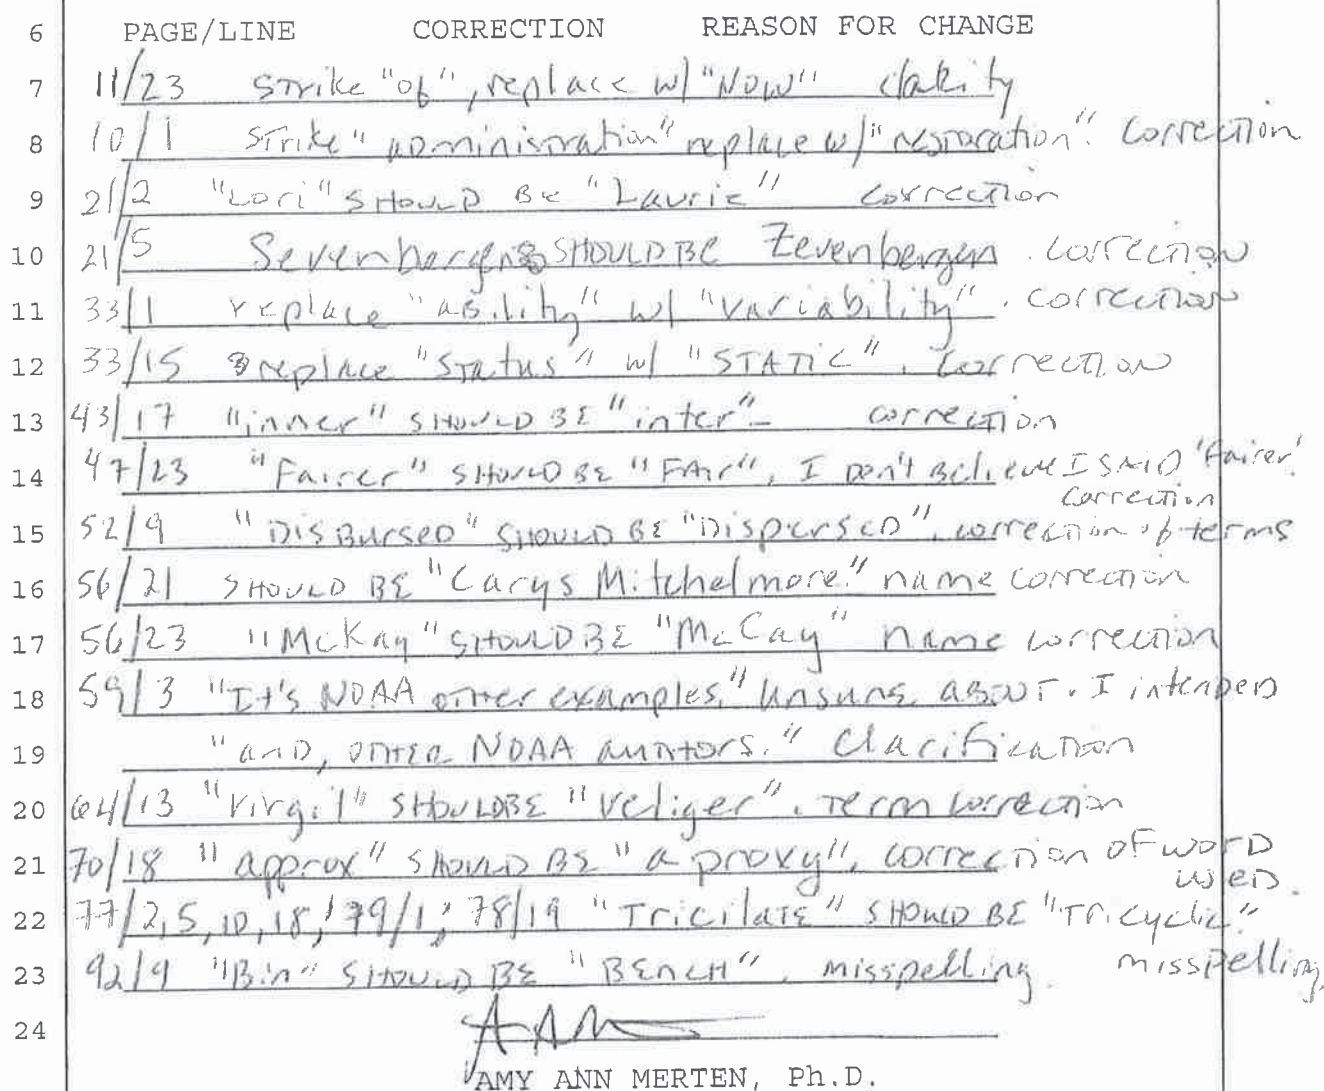 6 PAGE/LINE CORRECTION REASON FOR CHANGE
7 11/23 Strike "of", replace w/ "Now" clarity
8 10/1 Strike "administration" replace w/ "restoration". Correction
9 21/2 "Lori" SHOULD BE "Laurie" correction
10 21/5 Sevenbergen SHOULD BE Zevenbergen. correction
11 33/1 replace "ability" w/ "variability". correction
12 33/15 replace "Status" w/ "STATIC". correction
13 43/17 "inner" SHOULD BE "inter"- correction
14 47/23 "Fairer" SHOULD BE "FAir", I DON'T Believe I SAID 'fairer'.
correction
15 52/9 "DISBursed" SHOULD BE "Dispersed", correction of terms
16 56/21 SHOULD BE "Carys Mitchelmore." name correction
17 56/23 "McKay" SHOULD BE "McCay" name correction
18 59/3 "It's NOAA other examples," unsure about. I intended
19 "and, other NOAA authors." Clarification
20 64/13 "Virgil" SHOULD BE "Veliger". Term correction
21 70/18 "approx" SHOULD BE "a proxy", correction of word
used.
22 77/2,5,10,18, 79/1, 78/19 "Tricilate" SHOULD BE "Tricyclic."
misspelling.
23 92/9 "Bin" SHOULD BE "BENCH". misspelling.
24
AMY ANN MERTEN, Ph.D.